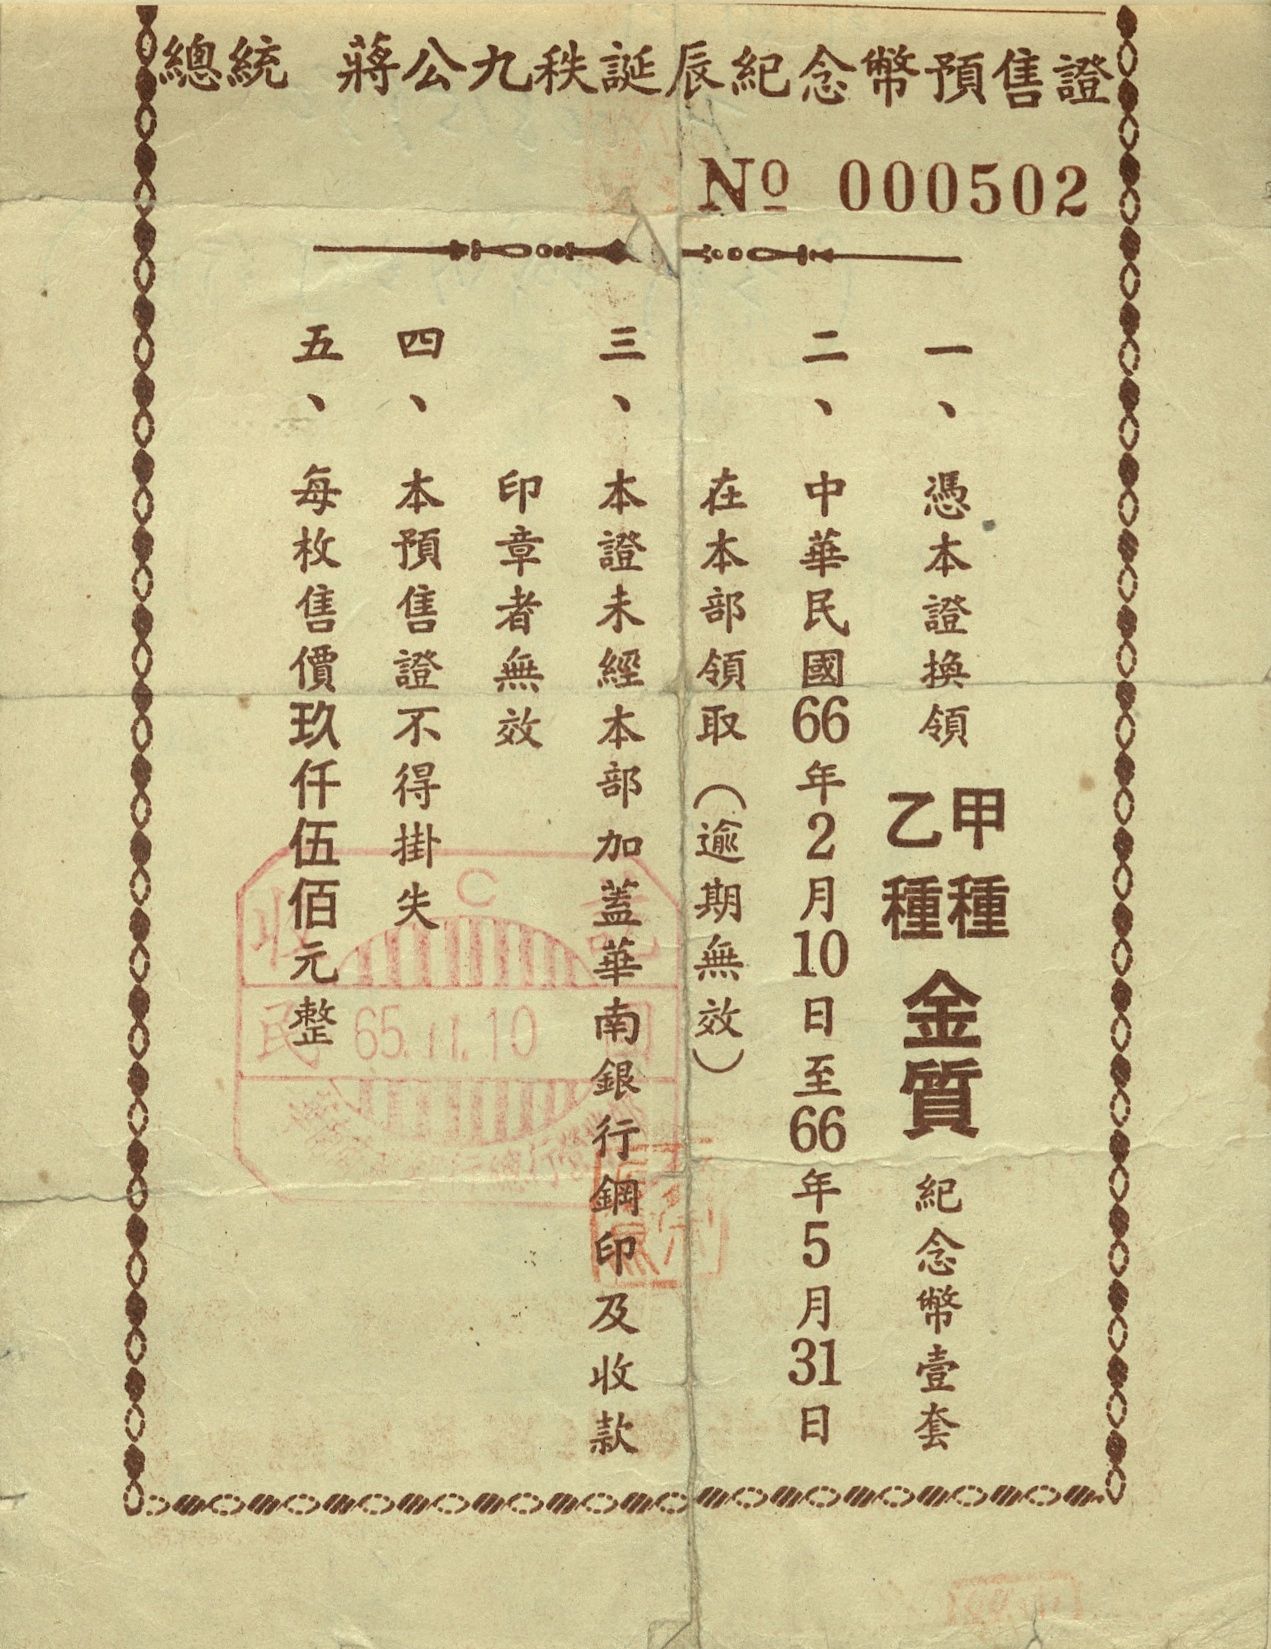 總統 蔣公九秩誕辰紀念幣預售證
№ 000502
一、憑本證換領甲種乙種金質紀念幣壹套
二、中華民國66年2月10日至66年5月31日
在本部領取（逾期無效）
三、本證未經本部加蓋華南銀行鋼印及收款
印章者無效
四、本預售證不得掛失
五、每枚售價玖仟伍佰元整
C
收訖
民國
65.11.10